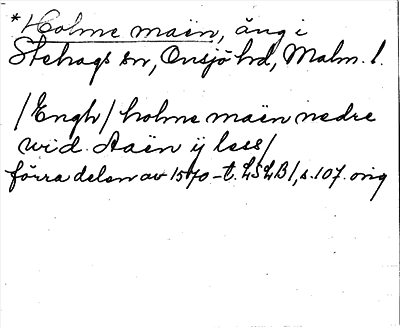 *Holme maën, äng i
Stehags sn, Onsjö hd, Malm. l.
/Engh/ holme maën nedre
wid. Aaën ij lass/
förra delen av 1570-t. LSLB/, s. 107. orig